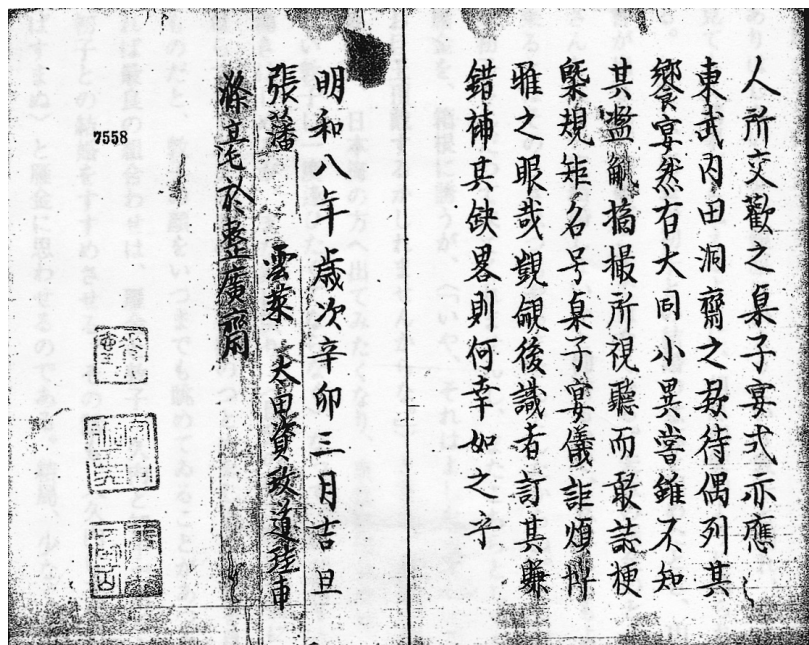 人所交歡之桌子宴式亦應〻
東武内田洞齋之㪅待偶列其
饗宴然有大同小異嘗雖不知
其濫觴摘撮所視聽而敢誌梗
槩規矩名号桌子宴儀詎煩博
雅之眼哉覬覦後識者訂其賺
錯補其缺畧則何幸如之乎
明和八年歳次辛卯三月吉旦
張藩 雲菜 太田資政道
滌毫於整廣齋
7558